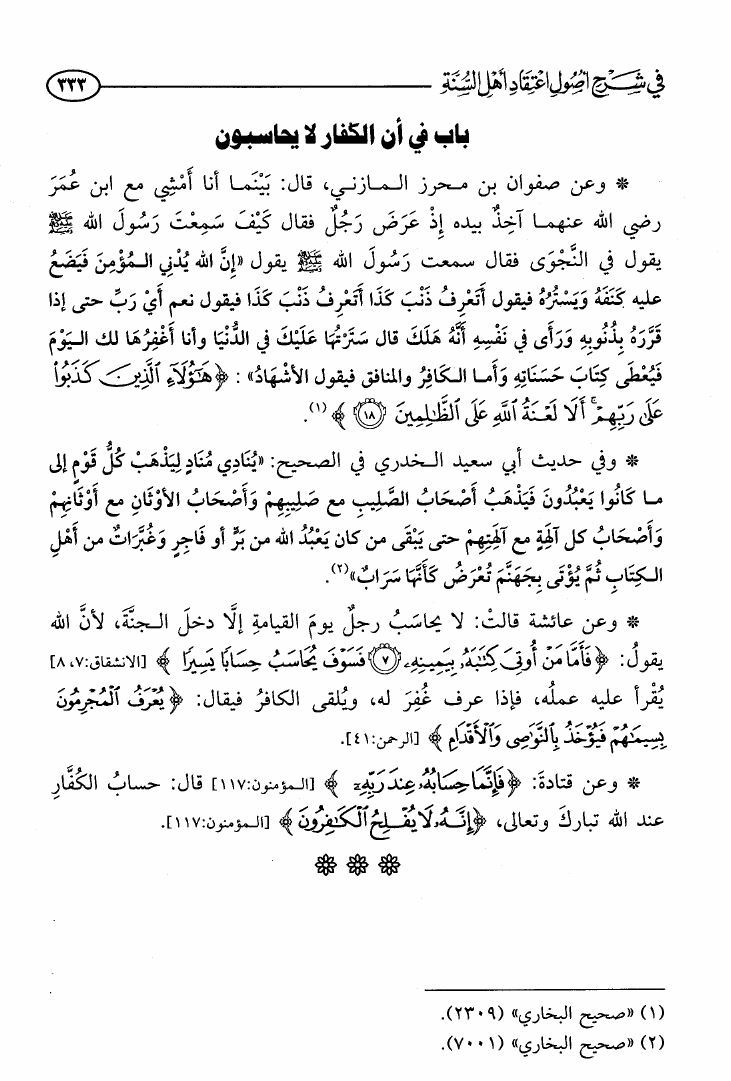 في شرح أصول اعتقاد أهل السنة
٣٣٣
باب في أن الكفار لا يحاسبون
* وعن صفوان بن محرز المازني، قال: بَيْنَما أنا أَمْشِي مع ابن عُمَرَ
رضي الله عنهما آخِذٌ بيده إِذْ عَرَضَ رَجُلٌ فقال كَيْفَ سَمِعْتَ رَسُولَ الله ﷺ
يقول في النَّجْوَى فقال سمعت رَسُولَ الله ﷺ يقول «إِنَّ الله يُدْنِي المُؤْمِنَ فَيَضَعُ
عليه كَنَفَهُ وَيَسْتُرُهُ فيقول أَتَعْرِفُ ذَنْبَ كَذَا أَتَعْرِفُ ذَنْبَ كَذَا فيقول نعم أَيْ رَبِّ حتى إذا
قَرَّرَهُ بِذُنُوبِهِ وَرَأَى في نَفْسِهِ أَنَّهُ هَلَكَ قال سَتَرْتُهَا عَلَيْكَ في الدُّنْيَا وأنا أَغْفِرُهَا لك اليَوْمَ
فَيُعْطَى كِتَابَ حَسَنَاتِهِ وَأَما الكافِرُ والمنافق فيقول الأَشْهَادُ» : ﴿ هَٰٓؤُلَآءِ ٱلَّذِينَ كَذَبُوا۟
عَلَىٰ رَبِّهِمْ ۚ أَلَا لَعْنَةُ ٱللَّهِ عَلَى ٱلظَّٰلِمِينَ ١٨ ﴾ (١).
* وفي حديث أبي سعيد الخدري في الصحيح: «يُنَادِي مُنَادٍ لِيَذْهَبْ كُلُّ قَوْمٍ إلى
ما كَانُوا يَعْبُدُونَ فَيَذْهَبُ أَصْحَابُ الصَّلِيبِ مع صَلِيبِهِمْ وَأَصْحَابُ الأَوْثَانِ مع أَوْثَانِهِمْ
وَأَصْحَابُ كل آلِهَةٍ مع آلِهَتِهِمْ حتى يَبْقَى من كان يَعْبُدُ الله من بَرٍّ أو فَاجِرٍ وَغُبَّرَاتٌ من أَهْلِ
الكِتَابِ ثُمَّ يُؤْتَى بِجَهَنَّمَ تُعْرَضُ كَأَنَّهَا سَرَابٌ»(٢).
* وعن عائشة قالتْ: لا يحاسَبُ رجلٌ يومَ القيامةِ إلَّا دخلَ الجنَّةَ، لأنَّ الله
يقولُ: ﴿ فَأَمَّا مَنْ أُوتِىَ كِتَٰبَهُۥ بِيَمِينِهِۦ ٧ فَسَوْفَ يُحَاسَبُ حِسَابًا يَسِيرًا ﴾ [الانشقاق:٧، ٨]
يُقْرأ عليه عملُه، فإذا عرف غُفِرَ له، ويُلقى الكافرُ فيقال: ﴿ يُعْرَفُ ٱلْمُجْرِمُونَ
بِسِيمَٰهُمْ فَيُؤْخَذُ بِٱلنَّوَٰصِى وَٱلْأَقْدَامِ ﴾ [الرحمن:٤١].
* وعن قتادةَ: ﴿ فَإِنَّمَا حِسَابُهُۥ عِندَ رَبِّهِۦٓ ﴾ [المؤمنون:١١٧] قال: حسابُ الكُفَّارِ
عند الله تباركَ وتعالى، ﴿إِنَّهُۥ لَا يُفْلِحُ ٱلْكَٰفِرُونَ ﴾ [المؤمنون:١١٧].
(١) «صحيح البخاري» (٢٣٠٩).
(٢) «صحيح البخاري» (٧٠٠١).